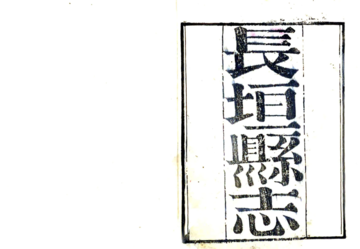 長垣縣志